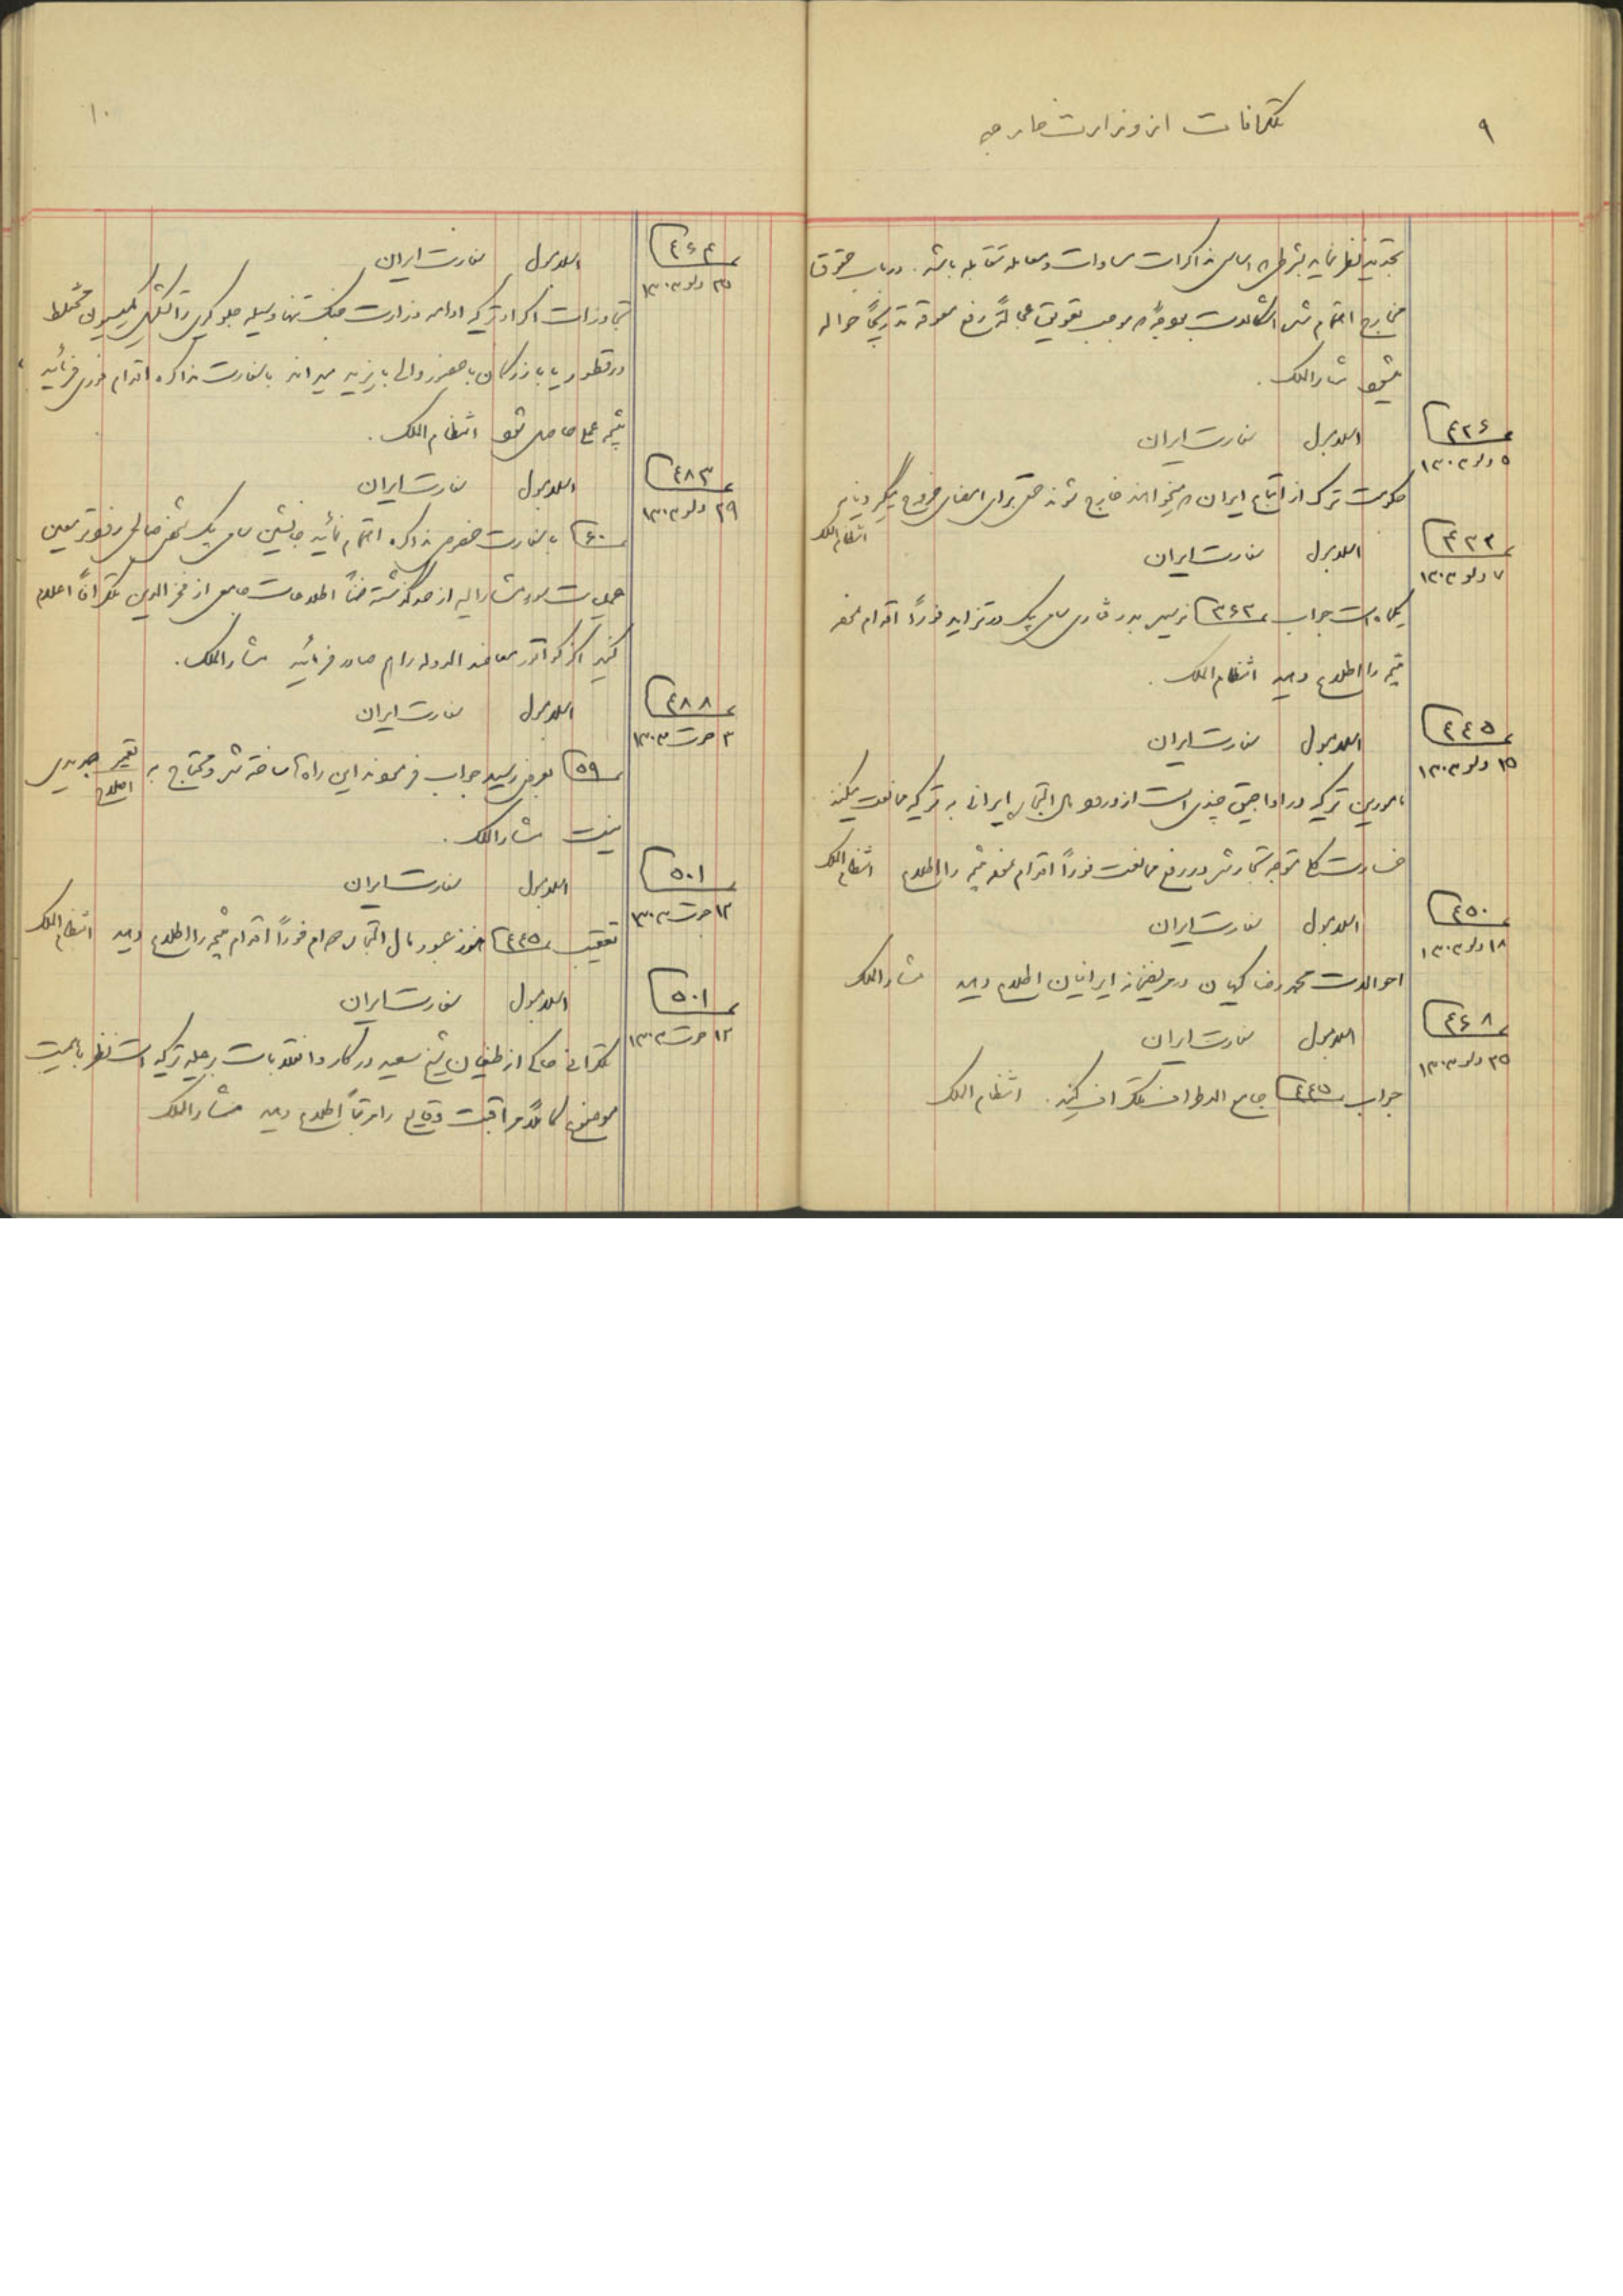 ۹
تلگرافات از وزارت خارجه
تجدید نظر نماید بشرطی که اساس مذاکرات مساوات و معامله متقابله باشد. در باب حقوق
مخارج اهتمام شد اشکالات موجب تعویق رفع معوقه تدریجاً حواله
میشود مشارالملک.
۴۲۶
۵ دلو ۱۳۰۳
اسلامبول سفارت ایران
حکومت ترک از اتباع ایران که میخواهند خارج شوند حتی برای امضای خروج میگیرد
انتظام الملک
۴۳۳
۷ دلو ۱۳۰۳
اسلامبول سفارت ایران
یکماه است جواب ۳۶۲ نرسید فوراً اقدام نموده
نتیجه را اطلاع دهید انتظام الملک.
۴۴۵
۱۵ دلو ۱۳۰۳
اسلامبول سفارت ایران
مأمورین ترکیه در اواجیق چندی است از ورود مال التجاره ایرانی به ترکیه ممانعت میکنند
خسارت کلی متوجه تجار شده در رفع ممانعت فوراً اقدام نموده نتیجه را اطلاع انتظام الملک
۴۵۰
۱۸ دلو ۱۳۰۳
اسلامبول سفارت ایران
احوالات محمد رضا کیهان در مریضخانه ایرانیان اطلاع دهید مشارالملک
۴۶۸
۲۵ دلو ۱۳۰۳
اسلامبول سفارت ایران
جواب ۴۴۵ جامع الاطراف تلگراف کنید. انتظام الملک
۱۰
۴۶۴
۲۵ دلو ۱۳۰۳
اسلامبول سفارت ایران
تجاوزات اکراد ترکیه ادامه وزارت جنگ تنها وسیله جلوگیری را تشکیل کمیسیون مختلط
در قطور یا بازرگان با حضور والی بایزید میداند با سفارت مذاکره اقدام فوری فرمائید
نتیجه عملی حاصل شود انتظام الملک.
۴۸۳
۲۹ دلو ۱۳۰۳
اسلامبول سفارت ایران
۶۰ با سفارت مذاکره اهتمام نمائید جانشین یک شخص صالحی زودتر معین
عملیات سوء مشارالیه از حد گذشته ضمناً اطلاعات از فخرالدین تلگرافاً اعلام
کنید اگزکواتور معاضد الدوله را هم صادر فرمائید مشارالملک.
۴۸۸
۳ حوت ۱۳۰۳
اسلامبول سفارت ایران
۵۹ بعرض رسید جواب فرمودند این راه ساخته شده و محتاج به تعمیر جدیدی
اصلاح
نیست مشارالملک.
۵۰۱
۱۲ حوت ۱۳۰۳
اسلامبول سفارت ایران
تعقیب ۴۴۵ هنوز عبور مال التجاره فوراً اقدام نتیجه را اطلاع دهید انتظام الملک
۵۰۱
۱۲ حوت ۱۳۰۳
اسلامبول سفارت ایران
تلگرافی حاکی از طغیان شیخ سعید در و انقلابات بر علیه ترکیه است نظر باهمیت
موضوع کاملاً مراقبت وقایع را مرتباً اطلاع دهید مشارالملک